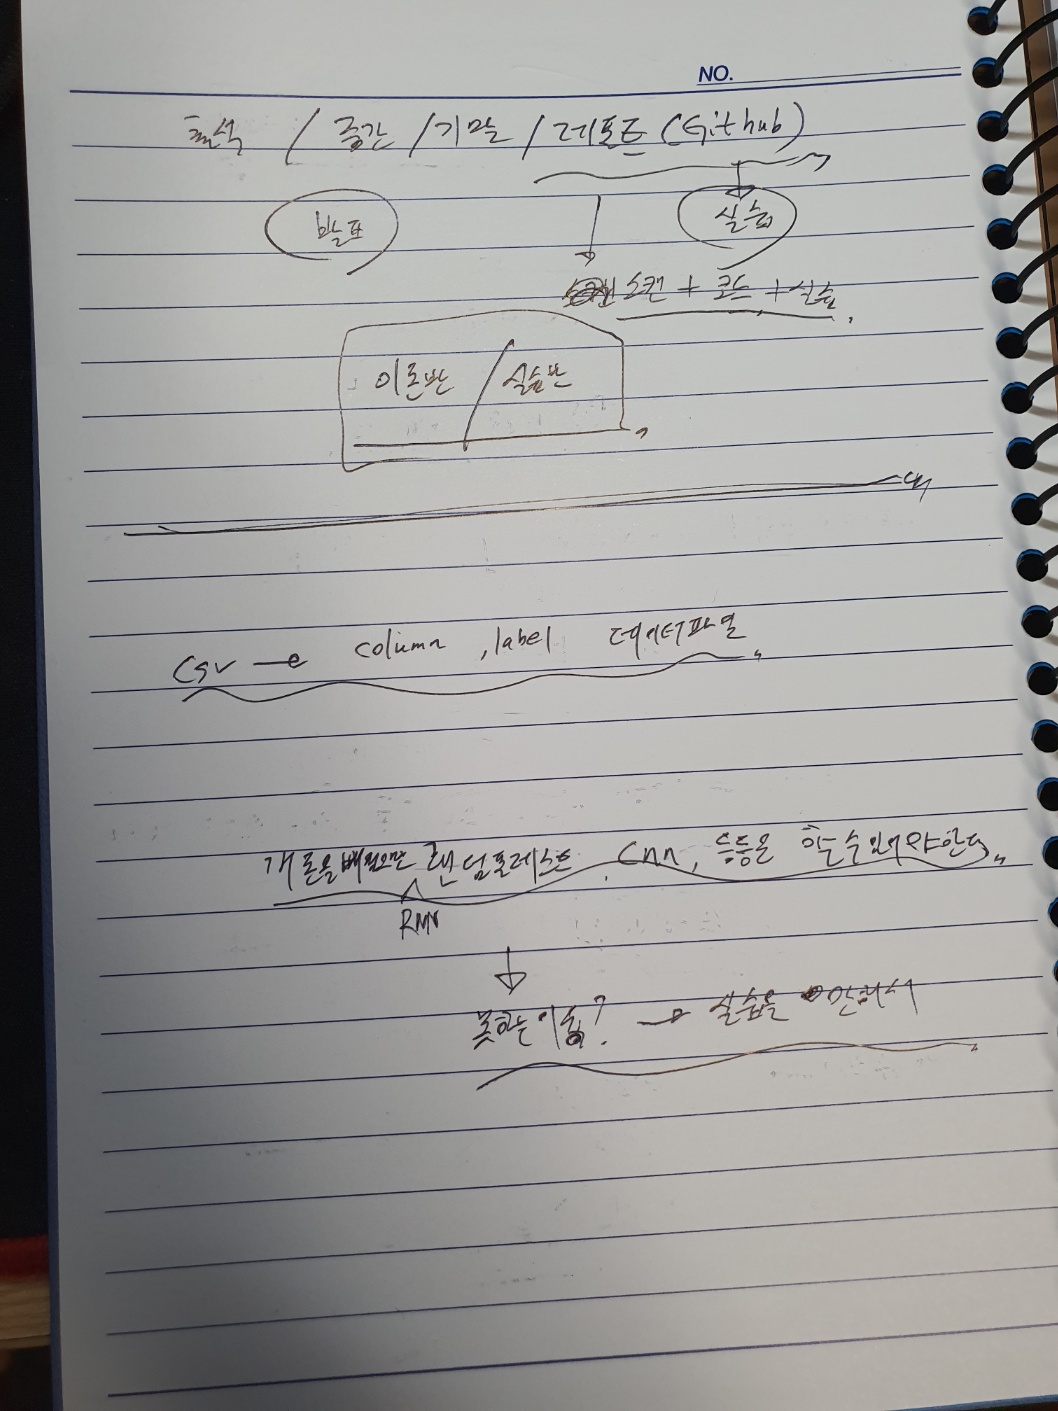 NO.
출석 / 중간 / 기말 / 레포트 (Github)
발표
실습
스캔 + 코드 + 실습
이론반 / 실습반
CSV → column , label 데이터파일
개론을 배웠으면 랜덤포레스트, Cnn, 등등은 할수있어야한다
못하는이유? → 실습을 안해서